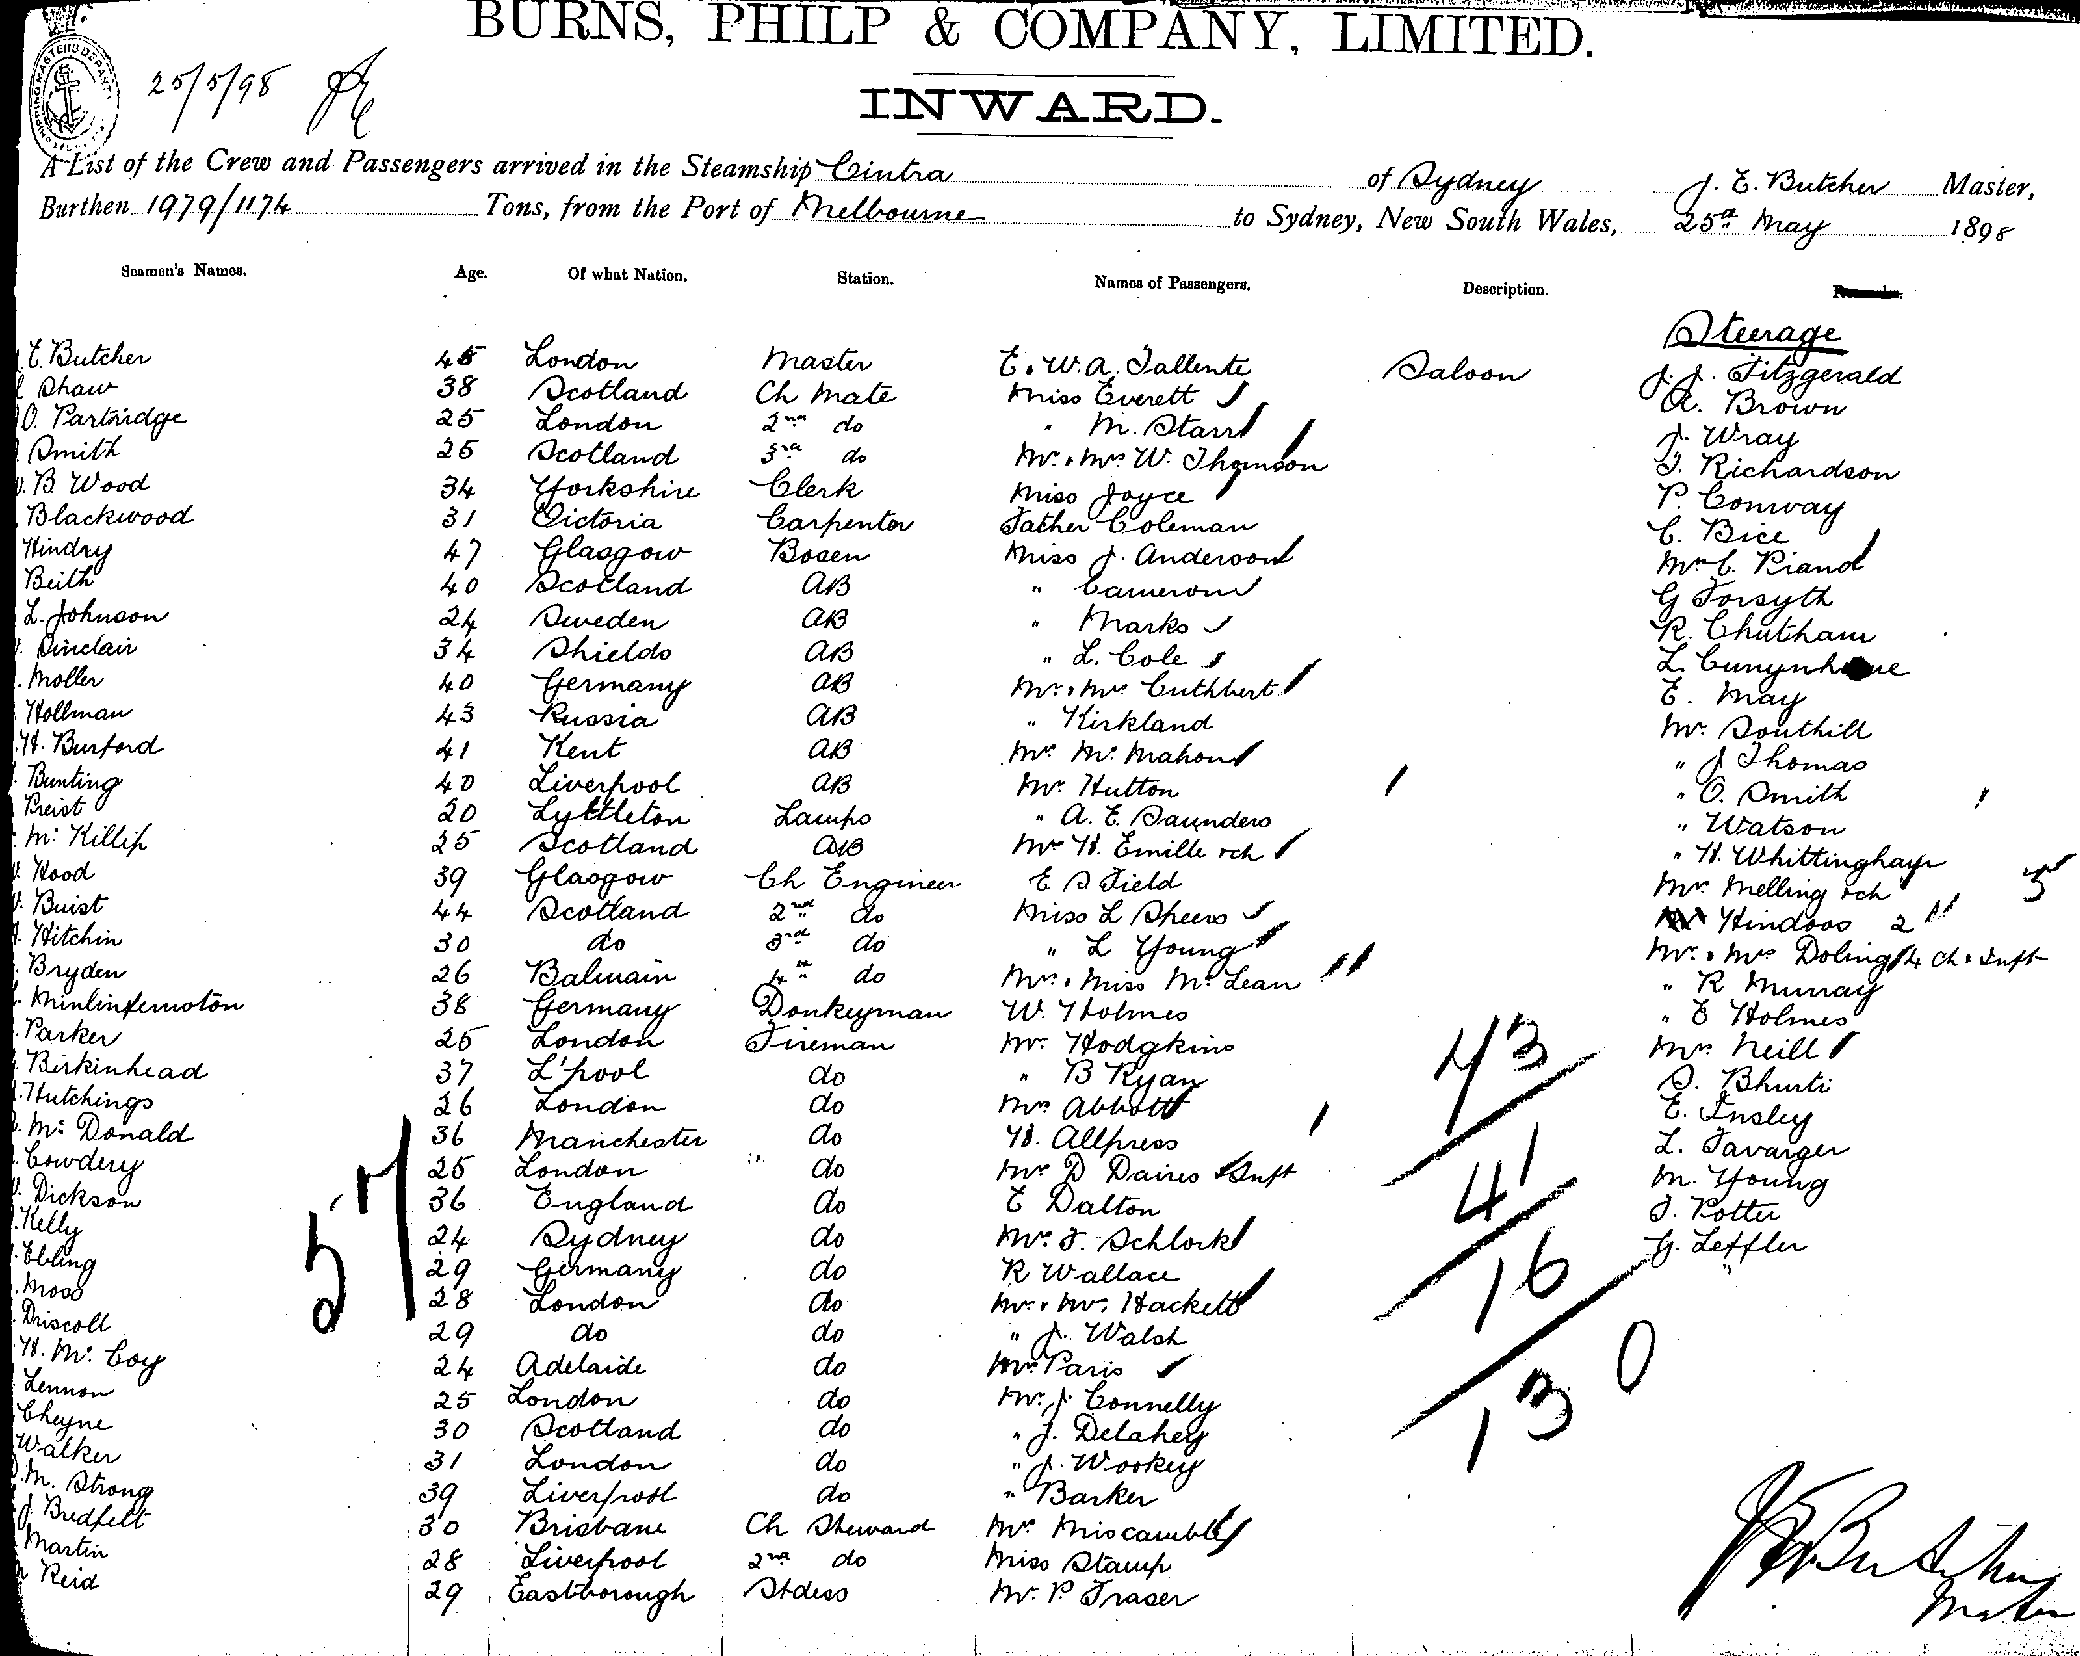 BURNS, PHILP & COMPANY, LIMITED.
25/5/98
INWARD.
A List of the Crew and Passengers arrived in the Steamship Cintra of Sydney J. E. Butcher Master,
Burthen 1979/1174 Tons, from the Port of Melbourne to Sydney, New South Wales, 25th May 1898
Seamen's Names. Age. Of what Nation. Station. Names of Passengers. Description.
Steerage
E. Butcher 45 London Master E. W. A. Tallente Saloon J. J. Fitzgerald
Shaw 38 Scotland Ch Mate Miss Everett A. Brown
O. Partridge 25 London 2nd do " M. Starr J. Wray
Smith 25 Scotland 3rd do Mr. & Mrs W. Thomson T. Richardson
B. Wood 34 Yorkshire Clerk Miss Joyce P. Conway
Blackwood 31 Victoria Carpenter Father Coleman C. Bice
Hindry 47 Glasgow Bosen Miss J. Anderson Mrs C. Riand
Beith 40 Scotland AB " Cameron G Forsyth
L. Johnson 24 Sweden AB " Marks R. Chutham
Sinclair 34 Shields AB " L. Cole L.
Moller 40 Germany AB Mr. & Mrs Cuthbert E. May
Hollman 43 Russia AB " Kirkland Mr. Southill
H. Burford 41 Kent AB Mrs McMahon " J Thomas
Bunting 40 Liverpool AB Mr Hutton " O. Smith
Preist 20 Lyttleton Lamps " A. E. Saunders " Watson
McKillip 25 Scotland AB Mrs H. Emille & ch " H. Whittingham
Hood 39 Glasgow Ch Engineer E S Field Mrs Melling & ch 5
Buist 44 Scotland 2nd do Miss L Sheers Hindoos 2
Hitchin 30 do 3rd do " L Young Mr. & Mrs Doling 4 ch & Inft
Bryden 26 Balmain 4th do Mrs. & Miss McLean " R Murray
38 Germany Donkeyman W. Holmes " E Holmes
Parker 25 London Fireman Mr. Hodgkins Mrs Neill
Birkinhead 37 L'pool do " B Ryan S. Bhurti
Hutchings 26 London do Mrs Abbott E. Insley
McDonald 36 Manchester do H. Allpress L. Tavarger
Cowdery 25 London do Mrs D Daires & Inft M. Young
Dickson 36 England do E Dalton T. Potter
Kelly 24 Sydney do Mrs. F. Schlork G. Leffler
Ebling 29 Germany do R Wallace
Moss 28 London do Mr. & Mrs. Hackett
Driscoll 29 do do " J. Walsh
H. McCoy 24 Adelaide do Mrs Paris
Lennon 25 London do Mr. J. Connelly
Cheyne 30 Scotland do " J. Delahey
Walker 31 London do " J. Wookey
M. Strong 39 Liverpool do " Barker
J. Bredfelt 30 Brisbane Ch Steward Mrs Miscamble
Martin 28 Liverpool 2nd do Miss Stamp
Reid 29 Eastborough Stdess Mr. P. Fraser
57
43
41
16
130
J E Butcher
Master